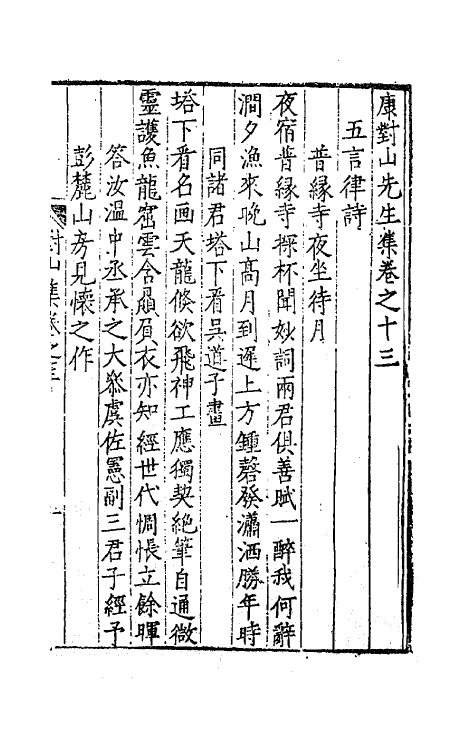 康對山先生集卷之十三
五言律詩
普緣寺夜坐待月
夜宿普緣寺探杯聞妙詞兩君俱善賦一醉我何辭
澗夕漁來晚山高月到遲上方鍾磬發瀟洒勝年時
同諸君塔下看吳道子畫
塔下看名画天龍倐欲飛神工應獨契絶筆自通微
靈護魚龍窟雲含贔屓衣亦知經世代惆悵立餘暉
答汝温中丞承之大叅虞佐憲副三君子經予
彭麓山房見懷之作
對山集卷之十三
一